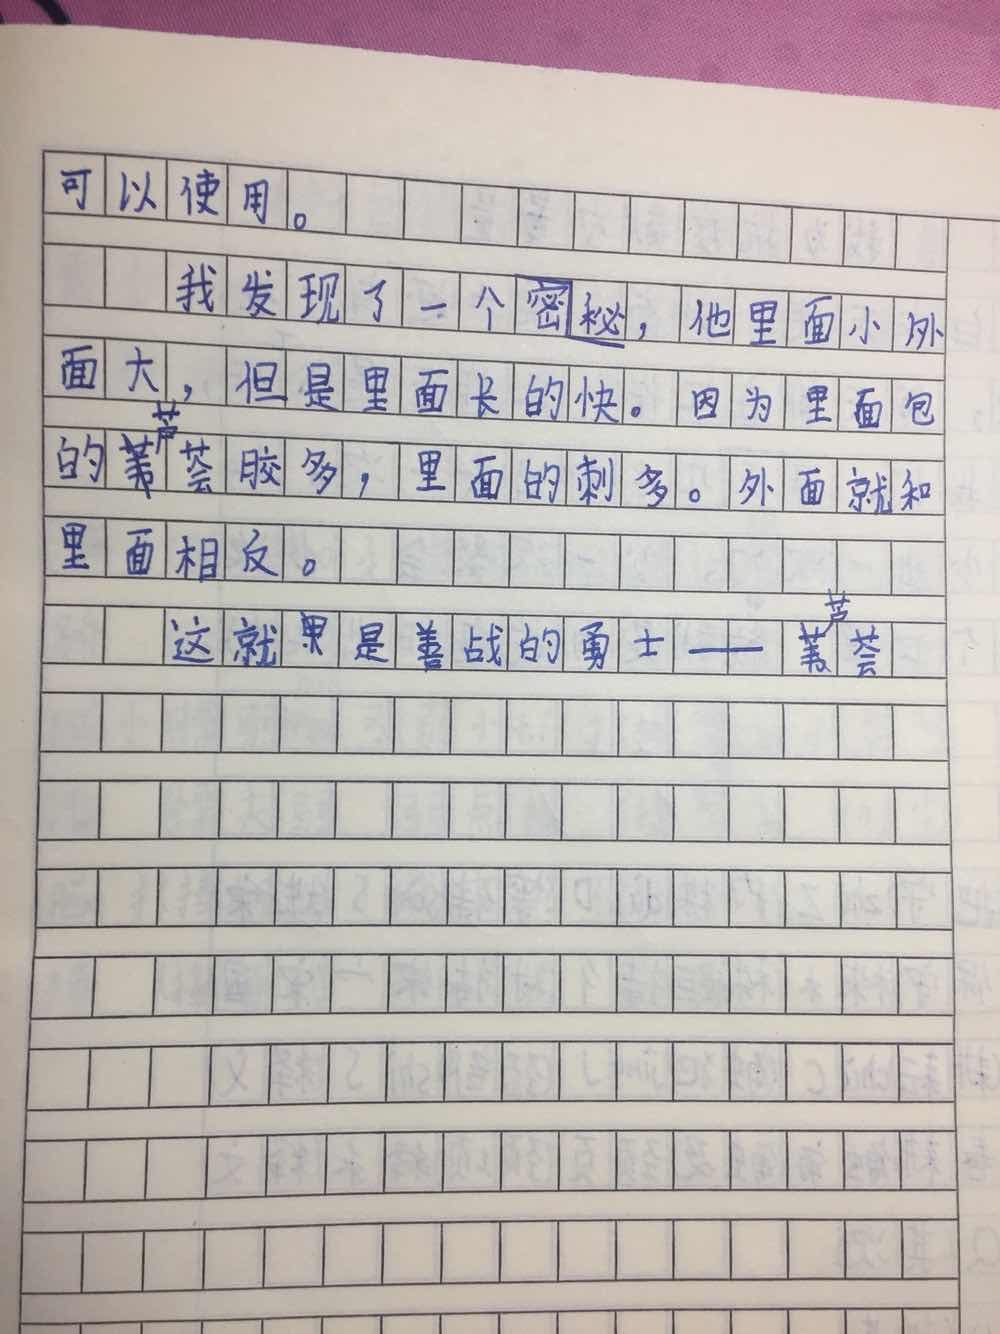 可以使用。
我发现了一个密秘，他里面小外
面大，但是里面长的快。因为里面包
的芦荟胶多，里面的刺多。外面就和
里面相反。
这就是善战的勇士——芦荟